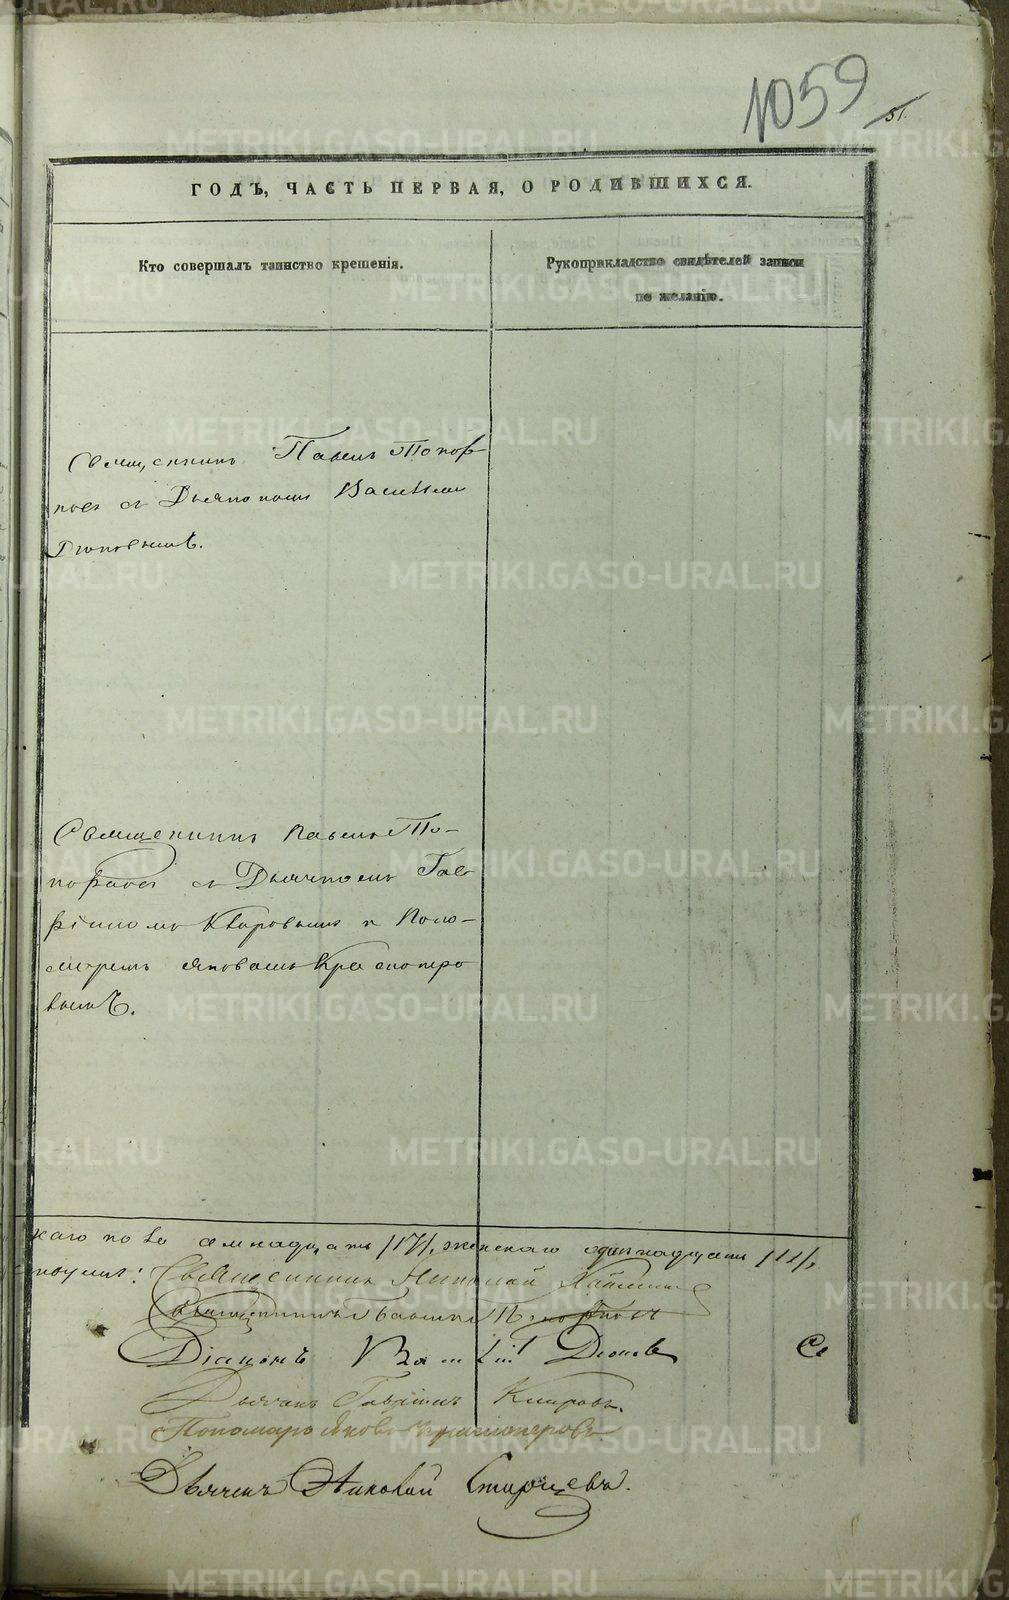 1059
51.
ГОДЪ, ЧАСТЬ ПЕРВАЯ, О РОДИВШИХСЯ.
Кто совершалъ таинство крещенія.
Рукоприкладство свидѣтелей записи
по желанію.
Священникъ Павелъ Топор
ковъ съ Дьякономъ Василіемъ
Священникъ Павелъ То-
порковъ съ Дьячкомъ Гав
ріиломъ Кыровымъ и Поно-
маремъ Яковомъ Краснопѣро
вымъ.
каго пола семнадцать /17/, женскаго одинадцать /11/,
Священникъ Николай
Священникъ Павелъ Топорковъ
Діаконъ Василій
Дьячекъ Гавріилъ Кыровъ.
Пономарь Яковъ Красноперовъ
Дьячекъ Николай Старцевъ.
METRIKI.GASO-URAL.RU